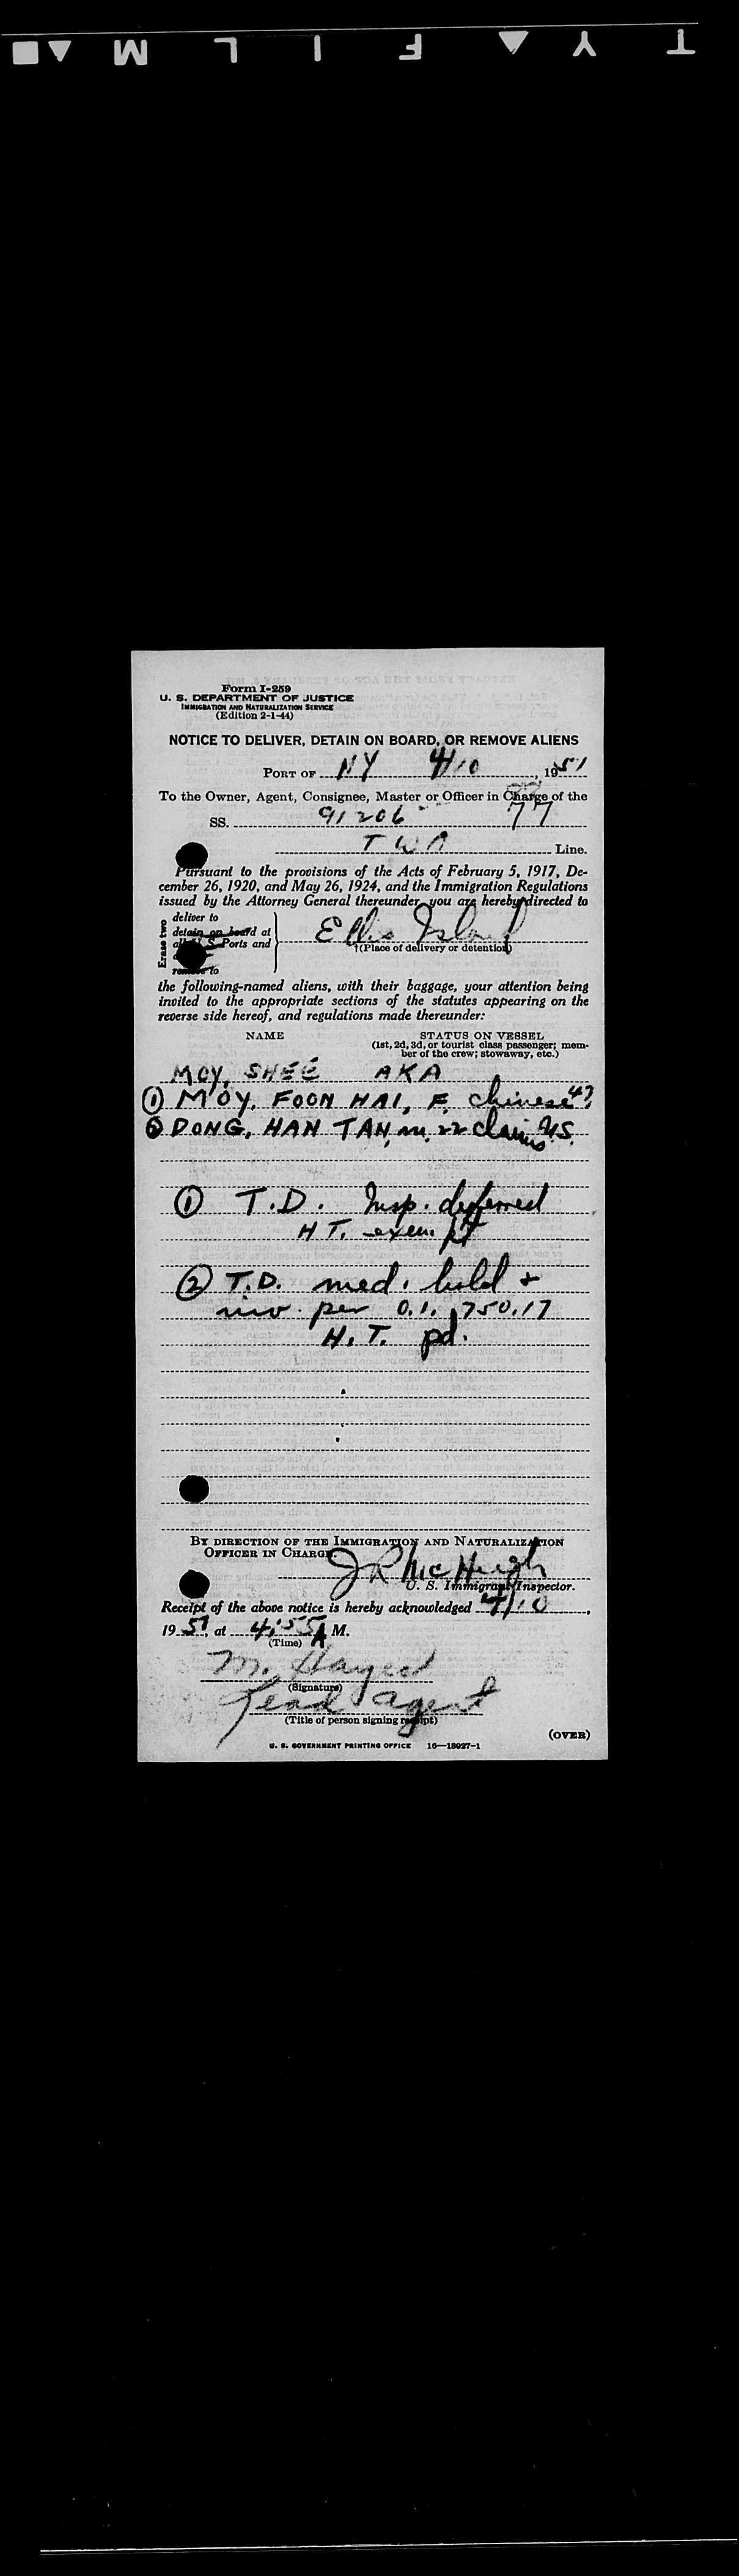 T Y A F I L M
Form I-259
U. S. DEPARTMENT OF JUSTICE
IMMIGRATION AND NATURALIZATION SERVICE
(Edition 2-1-44)
NOTICE TO DELIVER, DETAIN ON BOARD, OR REMOVE ALIENS
PORT OF NY 4/10, 1951
To the Owner, Agent, Consignee, Master or Officer in Charge of the
SS. 91206 77
TWA Line.
Pursuant to the provisions of the Acts of February 5, 1917, De-
cember 26, 1920, and May 26, 1924, and the Immigration Regulations
issued by the Attorney General thereunder, you are hereby directed to
Erase two
deliver to
detain on board at
all U. S. Ports and
remove to
Ellis Island
†(Place of delivery or detention)
the following-named aliens, with their baggage, your attention being
invited to the appropriate sections of the statutes appearing on the
reverse side hereof, and regulations made thereunder:
NAME STATUS ON VESSEL
(1st, 2d, 3d, or tourist class passenger; mem-
ber of the crew; stowaway, etc.)
MOY, SHEE AKA
① MOY, FOON HAI, F, Chinese
② DONG, HAN TAN, m, 22 claims U.S.
① T.D. Insp. deferred
H T. exempt
② T.D. med. hold +
inv. per O.I. 750.17
H.T. pd.
BY DIRECTION OF THE IMMIGRATION AND NATURALIZATION
OFFICER IN CHARGE
J R McHugh
U. S. Immigrant Inspector.
Receipt of the above notice is hereby acknowledged 4/10,
1951, at 4:55 A M.
(Time)
M. Hayes
(Signature)
Lead agent
(Title of person signing receipt)
(OVER)
U. S. GOVERNMENT PRINTING OFFICE 16—18027-1